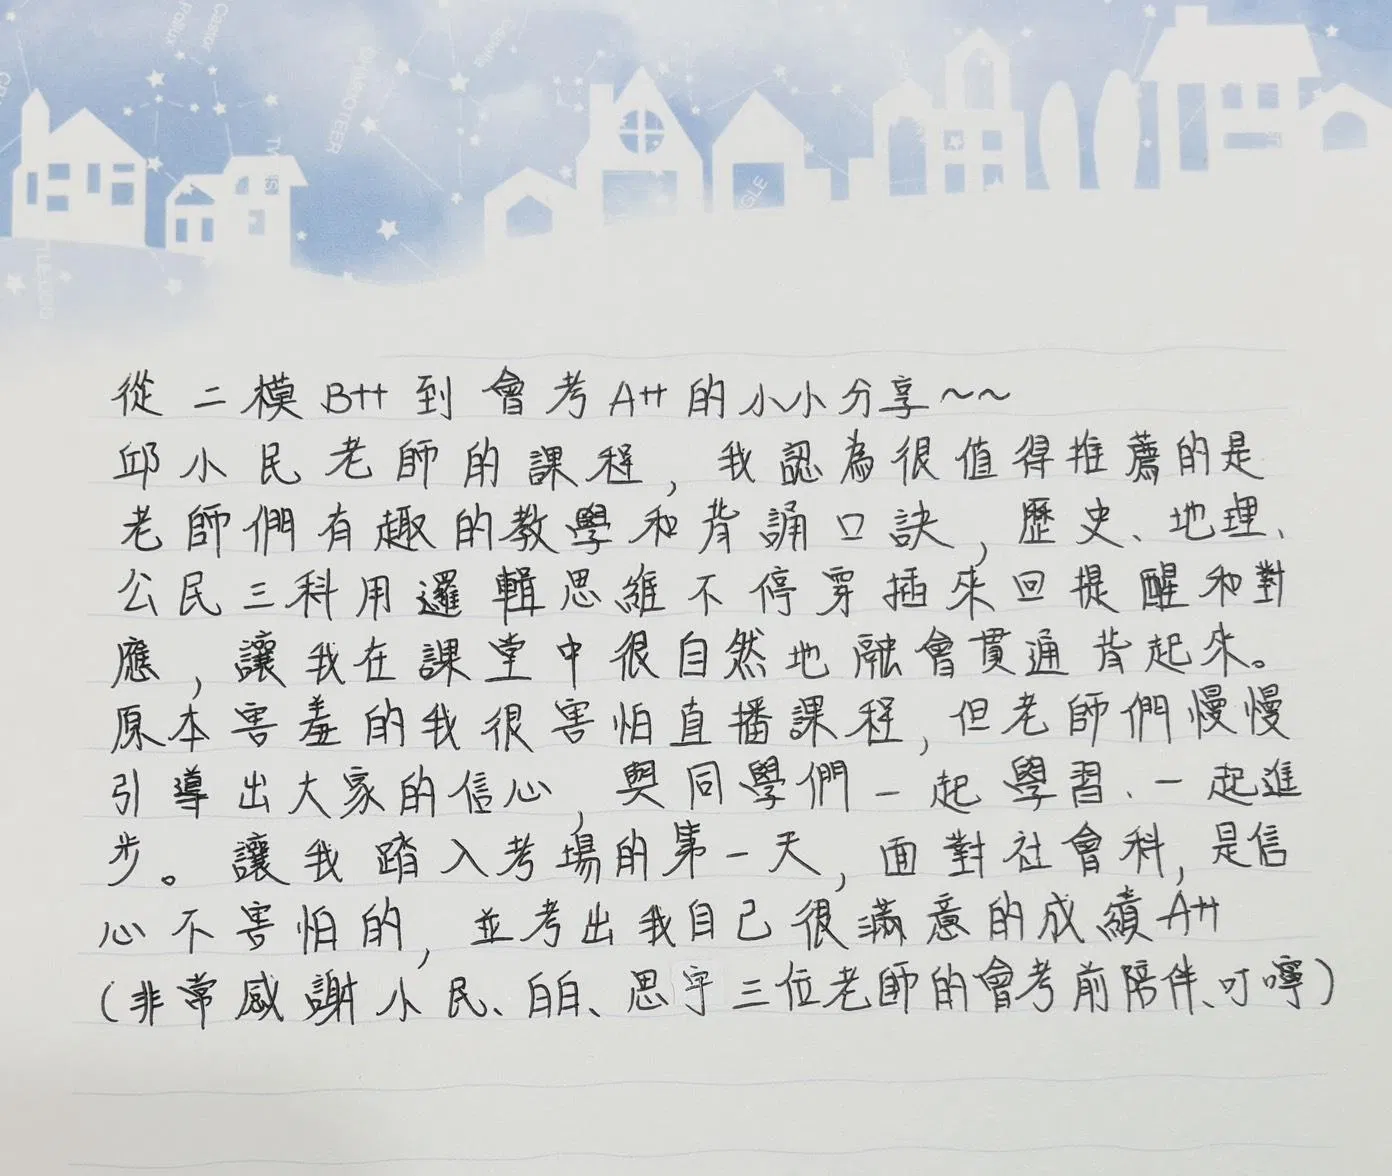 Pollux
Castor
CHANOTEER
GLE
從二模B++到會考A++的小小分享~~
邱小民老師的課程,我認為很值得推薦的是
老師們有趣的教學和背誦口訣,歷史、地理、
公民三科用邏輯思維不停穿插來回提醒和對
應,讓我在課堂中很自然地融會貫通背起來。
原本害羞的我很害怕直播課程,但老師們慢慢
引導出大家的信心,與同學們一起學習、一起進
步。讓我踏入考場的第一天,面對社會科,是信
心不害怕的,並考出我自己很滿意的成績A++
(非常感謝小民、白白、思宇三位老師的會考前陪伴、叮嚀)